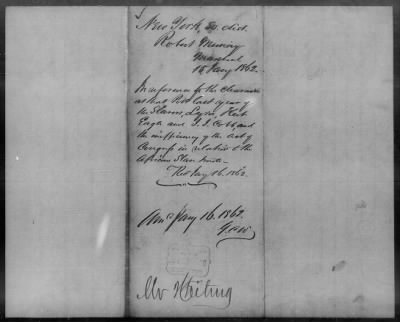 New York, So. dist.
Robert Murray
Marshal
15 Jany 1862.
In reference to the clearance
at that Port last year of
the Slavers,
Eagle and
and
the inefficiency of the act of
Congress in relation to the
African Slave trade.
Recd Jany 16. 1862.
Ansd Jany 16. 1862.
Mr Whiting